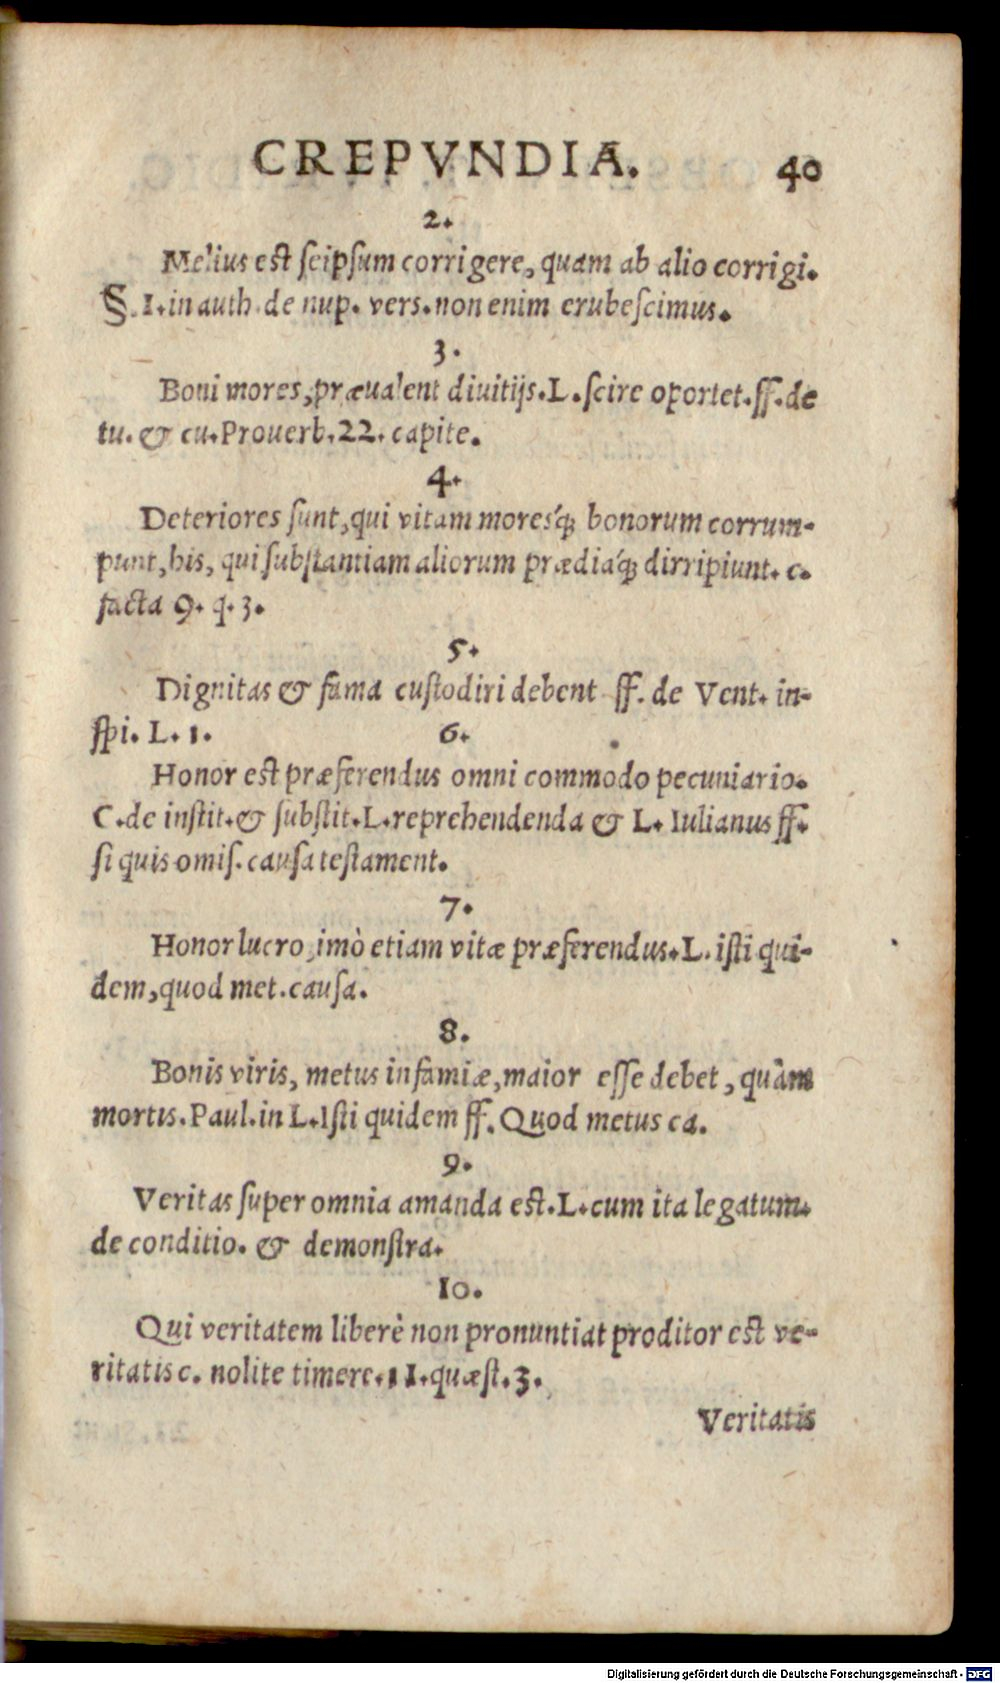 CREPVNDIA. 40
2.
Melius est seipsum corrigere, quam ab alio corrigi.
§. 1. in auth. de nup. vers. non enim erubescimus.
3.
Boni mores, præualent diuitijs. L. scire oportet. ff. de
tu. & cu. Prouerb. 22. capite.
4.
Deteriores sunt, qui vitam moresq́; bonorum corrum-
punt, his, qui substantiam aliorum prædiaq́; dirripiunt. c.
facta 9. q. 3.
5.
Dignitas & fama custodiri debent ff. de Vent. in-
spi. L. 1.
6.
Honor est præferendus omni commodo pecuniario.
C. de instit. & substit. L. reprehendenda & L. Iulianus ff.
si quis omis. causa testament.
7.
Honor lucro, imò etiam vitæ præferendus. L. isti qui-
dem, quod met. causa.
8.
Bonis viris, metus infamiæ, maior esse debet, quàm
mortis. Paul. in L. Isti quidem ff. Quod metus ca.
9.
Veritas super omnia amanda est. L. cum ita legatum.
de conditio. & demonstra.
10.
Qui veritatem liberè non pronuntiat proditor est ve-
ritatis c. nolite timere. 11. quæst. 3.
Veritatis
Digitalisierung gefördert durch die Deutsche Forschungsgemeinschaft - DFG